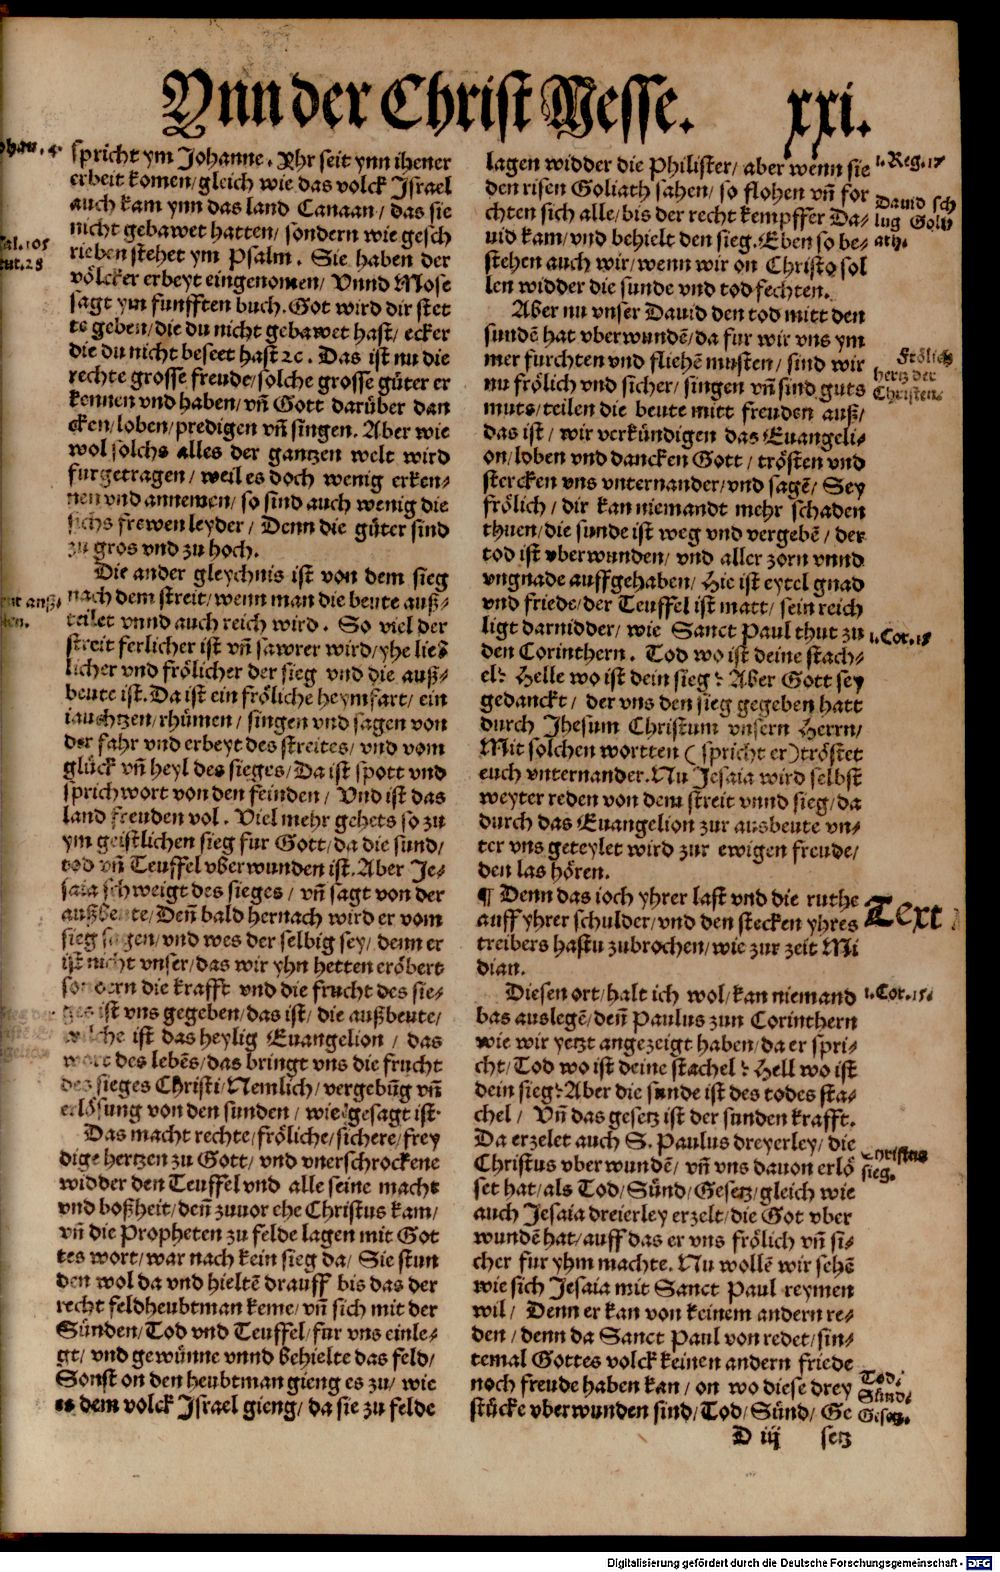 Ynn der Christ Messe. xxi.
spricht ym Johanne. Yhr seit ynn ihener
erbeit komen/ gleich wie das volck Israel
auch kam ynn das land Canaan/ das sie
nicht gebawet hatten/ sondern wie gesch
rieben stehet ym Psalm. Sie haben der
völcker erbeyt eingenomen/ Vnnd Mose
sagt ym funfften buch. Got wird dir stet
te geben/ die du nicht gebawet hast/ ecker
die du nicht beseet hast ꝛc. Das ist nu die
rechte grosse freude/ solche grosse güter er
kennen vnd haben/ vñ Gott darüber dan
cken/ loben/ predigen vñ singen. Aber wie
wol solchs alles der gantzen welt wird
furgetragen/ weil es doch wenig erken-
nen vnd annemen/ so sind auch wenig die
sichs frewen leyder/ Denn die güter sind
zu gros vnd zu hoch.
Die ander gleychnis ist von dem sieg
nach dem streit/ wenn man die beute auß-
teilet vnnd auch reich wird. So viel der
streit ferlicher ist vñ sawrer wird/ yhe lieb
licher vnd frölicher der sieg vnd die auß-
beute ist. Da ist ein fröliche heymfart/ ein
iauchtzen/ rhümen/ singen vnd sagen von
der fahr vnd erbeyt des streites/ vnd vom
glück vñ heyl des sieges/ Da ist spott vnd
sprichwort von den feinden/ Vnd ist das
land freuden vol. Viel mehr gehets so zu
ym geistlichen sieg fur Gott/ da die sund/
tod vñ Teuffel vberwunden ist. Aber Je-
saia schweigt des sieges/ vñ sagt von der
außbeute/ Deñ bald hernach wird er vom
sieg sagen/ vnd wes der selbig sey/ denn er
ist nicht vnser/ das wir yhn hetten eröbert
sondern die krafft vnd die frucht des sie-
ges ist vns gegeben/ das ist/ die außbeute/
wilche ist das heylig Euangelion/ das
wort des lebēs/ das bringt vns die frucht
des sieges Christi/ Nemlich/ vergebūg vñ
erlösung von den sunden/ wie gesagt ist.
Das macht rechte/ fröliche/ sichere/ frey
dige hertzen zu Gott/ vnd vnerschrockene
widder den Teuffel vnd alle seine macht
vnd boßheit/ deñ zuuor ehe Christus kam/
vñ die Propheten zu felde lagen mit Got
tes wort/ war nach kein sieg da/ Sie stun
den wol da vnd hieltē drauff bis das der
recht feldheubtman keme/ vñ sich mit der
Sünden/ Tod vnd Teuffel/ fur vns einle-
gt/ vnd gewünne vnnd behielte das feld/
Sonst on den heubtman gieng es zu/ wie
es dem volck Israel gieng/ da sie zu felde
Tal. 105
eut. 28
lagen widder die Philister/ aber wenn sie
den risen Goliath sahen/ so flohen vñ for
chten sich alle/ bis der recht kempffer Da-
uid kam/ vnd behielt den sieg. Eben so be-
stehen auch wir/ wenn wir on Christo sol
len widder die sunde vnd tod fechten.
Aber nu vnser Dauid den tod mitt den
sundē hat vberwundē/ da fur wir vns ym
mer furchten vnd fliehē musten/ sind wir
nu frölich vnd sicher/ singen vñ sind guts
muts/ teilen die beute mitt freuden auß/
das ist/ wir verkündigen das Euangeli-
on/ loben vnd dancken Gott/ trösten vnd
stercken vns vnternander/ vnd sagē/ Sey
frölich/ dir kan niemandt mehr schaden
thuen/ die sunde ist weg vnd vergebē/ der
tod ist vberwunden/ vnd aller zorn vnnd
vngnade auffgehaben/ Hie ist eytel gnad
vnd friede/ der Teuffel ist matt/ sein reich
ligt darnidder/ wie Sanct Paul thut zu
den Corinthern. Tod wo ist deine stach-
el? Helle wo ist dein sieg? Aber Gott sey
gedanckt/ der vns den sieg gegeben hatt
durch Jhesum Christum vnsern Herrn/
Mit solchen wortten (spricht er) tröstet
euch vnternander. Nu Jesaia wird selbst
weyter reden von dem streit vnnd sieg/ da
durch das Euangelion zur ausbeute vn-
ter vns geteylet wird zur ewigen freude/
den las hören.
¶ Denn das ioch yhrer last vnd die ruthe
auff yhrer schulder/ vnd den stecken yhres
treibers hastu zubrochen/ wie zur zeit Mi
dian.
Diesen ort/ halt ich wol/ kan niemand
bas auslegē/ deñ Paulus zun Corinthern
wie wir yetzt angezeigt haben/ da er spri-
cht/ Tod wo ist deine stachel? Hell wo ist
dein sieg? Aber die sunde ist des todes sta-
chel/ Vñ das gesetz ist der sunden krafft.
Da erzelet auch S. Paulus dreyerley/ die
Christus vberwundē/ vñ vns dauon erlö
set hat/ als Tod/ Sünd/ Gesetz/ gleich wie
auch Jesaia dreierley erzelt/ die Got vber
wundē hat/ auff das er vns frölich vñ si-
cher fur yhm machte. Nu wollē wir sehē
wie sich Jesaia mit Sanct Paul reymen
wil/ Denn er kan von keinem andern re-
den/ denn da Sanct Paul von redet/ sin-
temal Gottes volck keinen andern friede
noch freude haben kan/ on wo diese drey
stücke vberwunden sind/ Tod/ Sünd/ Ge
D iij setz
1. Reg. 17
Dauid sch
lug Goli
ath.
Frölich
hertz der
Christen.
1. Cor. 15
Text
1. Cor. 15.
Christus
sieg.
Tod.
Sünd.
Gesetz.
Digitalisierung gefördert durch die Deutsche Forschungsgemeinschaft - DFG